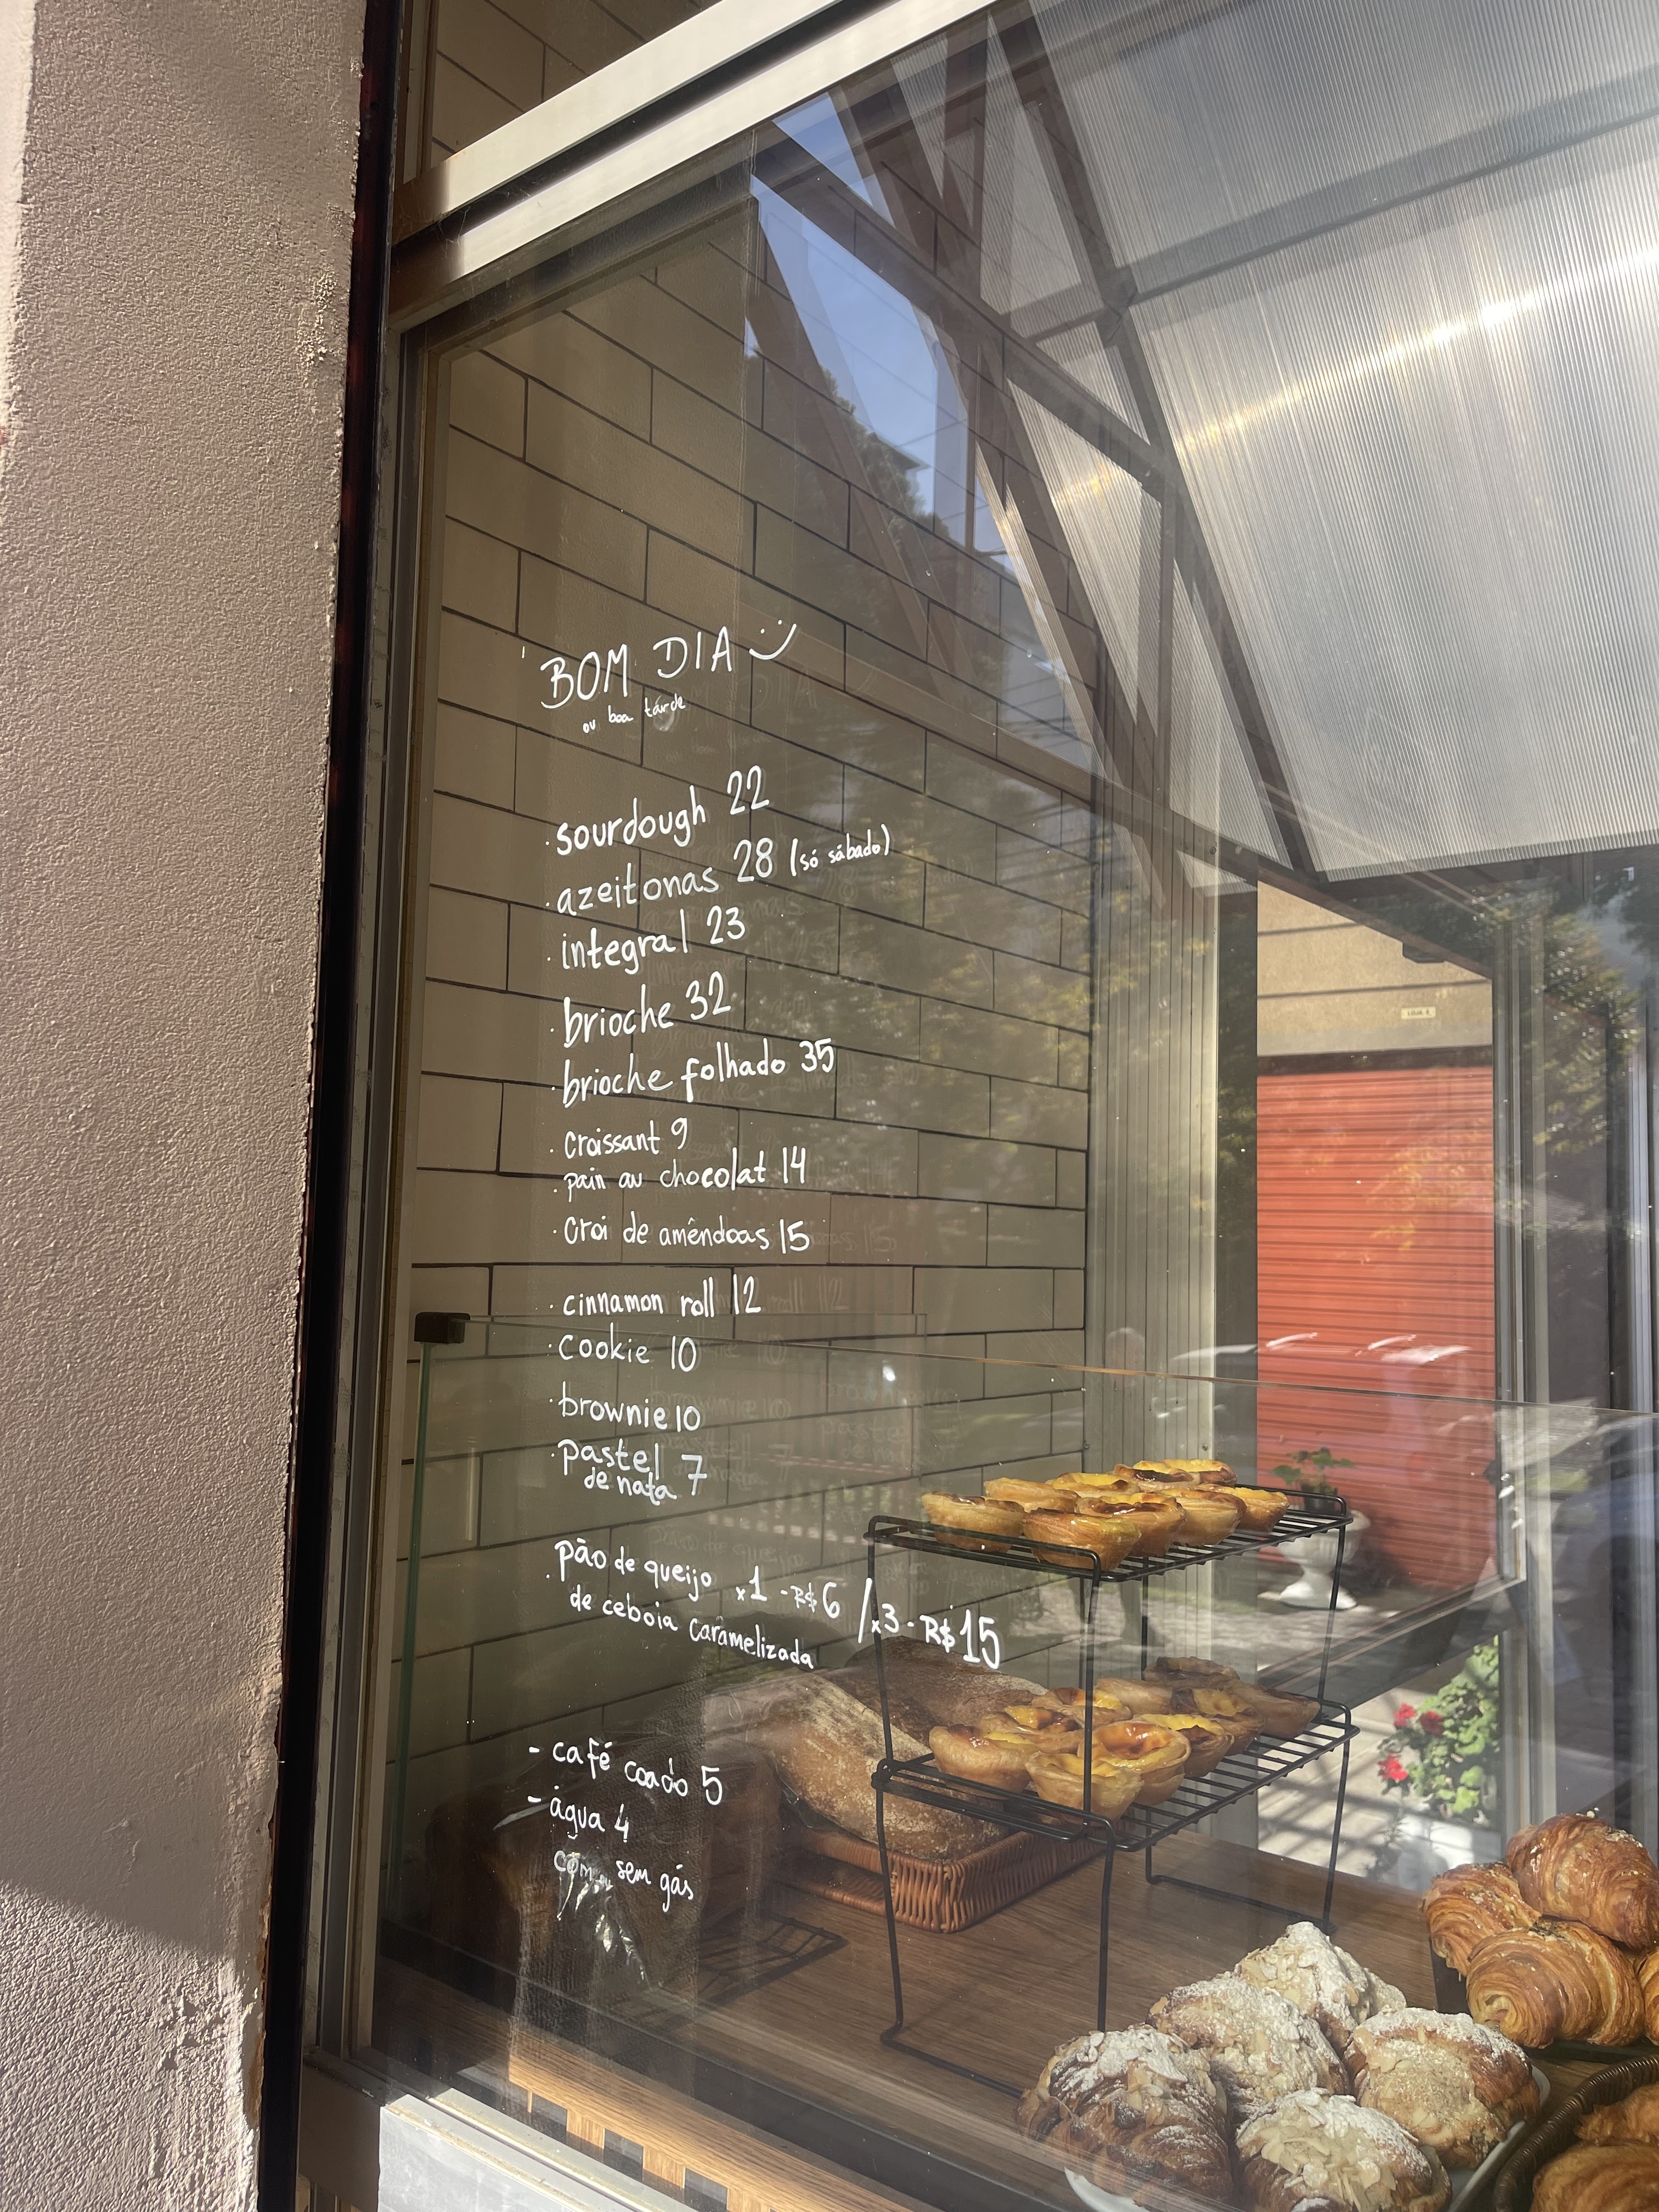 BOM DIA
ou boa tarde
· sourdough 22
· azeitonas 28 (só sábado)
· integral 23
· brioche 32
· brioche folhado 35
· croissant 9
· pain au chocolat 14
· croi de amêndoas 15
· cinnamon roll 12
· cookie 10
· brownie 10
· pastel 7
de nata
· pão de queijo x1 - R$ 6 / x3 - R$ 15
de cebola caramelizada
- café coado 5
- água 4
com ou sem gás